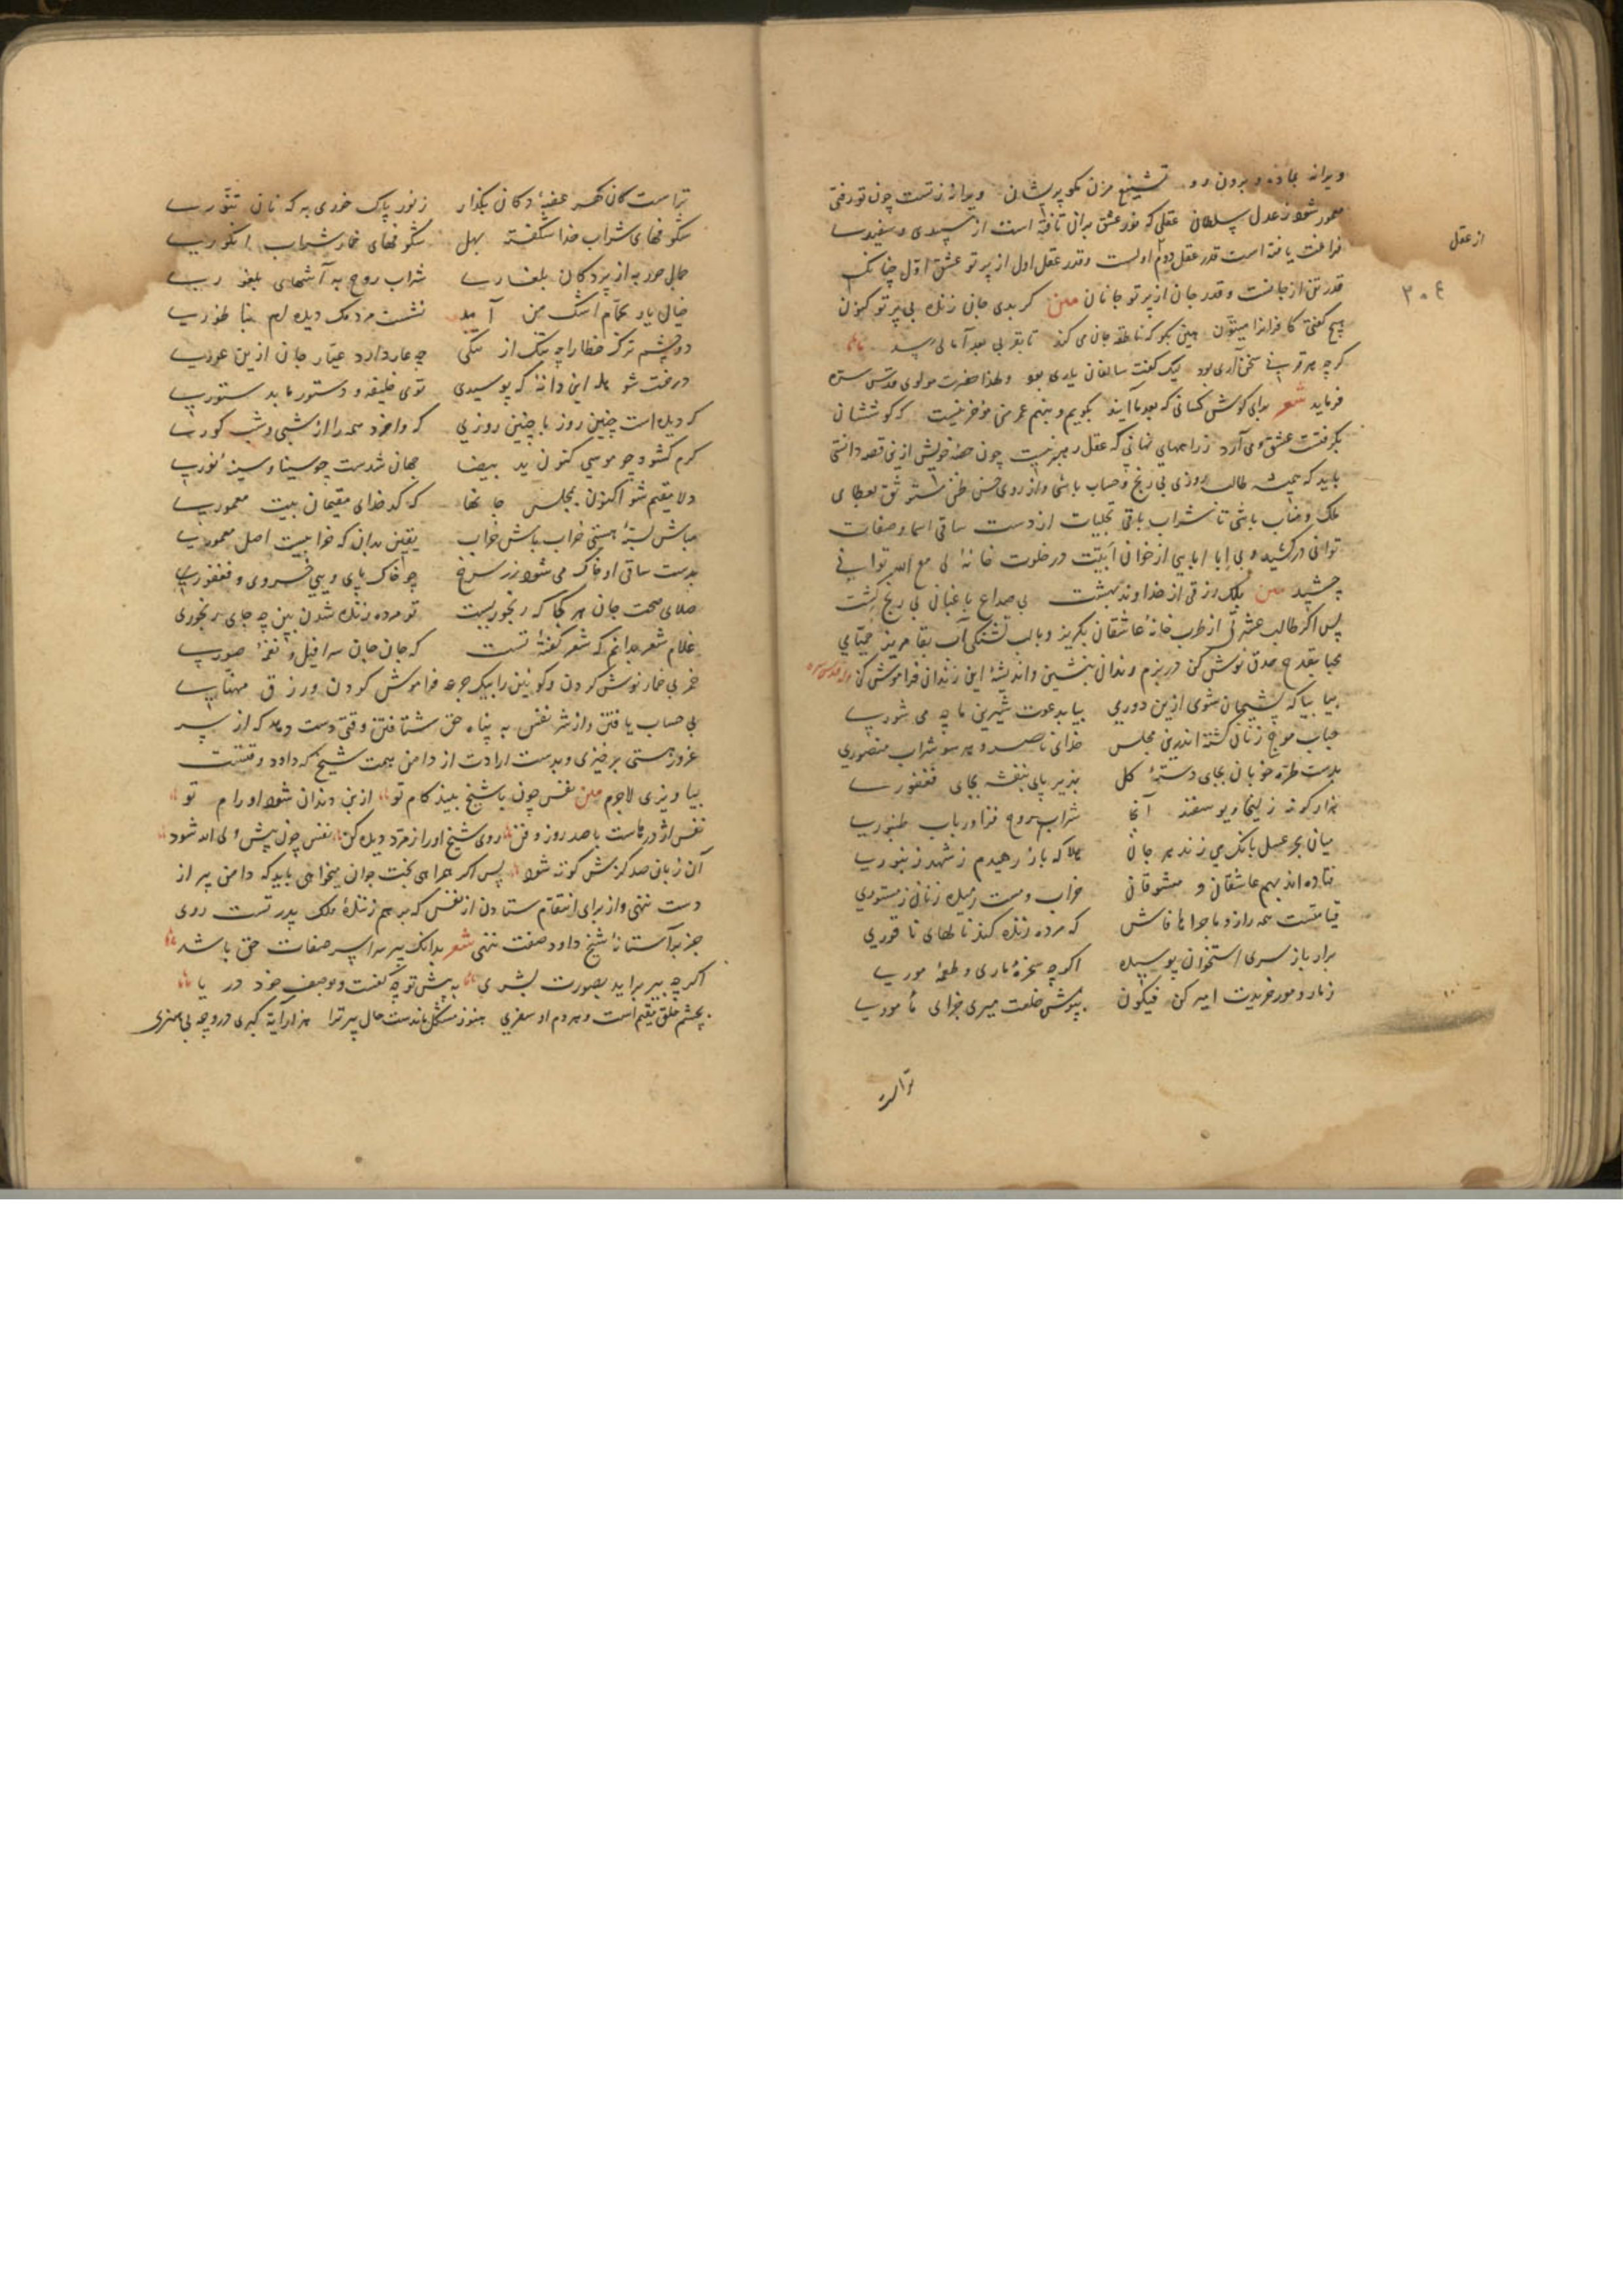 ویرانه بماند و برون رو تشنیع مزن مکو پریشان ویرانه زتست چون تو رفتی
معمور شود ز عدل سلطان عقلی که نور عشق بران تافته است از سپیدی و سفیدی
از عقل
فراغت یافته است قدر عقل دوم اولست و قدر عقل اول از پرتو عشق اول چنانک
۳۰۴
قدر تن از جانست و قدر جان از پرتو جانان متن کر بدی جان زنده بی پرتو کنون
هیچ کفتی کافرانرا میتون هین بکو که ناطقه جان می کند تا بقرنی بعد ما آبی رسد
کرچه هر قرنی سخن آری بود لیک کفت سالفان یاری بود ولهذا حضرت مولوی قدس سره
فرماید شعر برای کوش کسانی که بعد ما آیند بکویم و بنهم عمر من مؤخر نیست که کوششان
بکرفتست عشق و می آرد ز راههای نهانی که عقل رهبر نیست چون حصهٔ خویش ازین قصه دانستی
باید که همیشه طالب روزی بی رنج و حساب باشی و از روی حسن ظن مستوثق بعطای
ملک وهاب باشی تا شراب باقی تجلیات از دست ساقی اسما و صفات
توانی درکشید و بی ابا ابایی از خوان ابیت در خلوت خانهٔ لی مع الله توانی
چشید متن بلک رزقی از خداوند بهشت بی صداع باغبان بی رنج کشت
پس اکر طالب عشرتی از طرب خانهٔ عاشقان مکریز و بالب تشنکی آب بقا مریز
محیا بقدح صدق نوش کن در بزم رندان بنشین و اندیشهٔ این زندان فراموش کن وله قدس سره
بیا بیا که پشیمان شوی ازین دوری بیا بدعوت شیرین ما چه می شوری
حباب موج زنان کشته اندرین مجلس خدای ناصر و هر سو شراب منصوری
بدست طرهٔ خوبان بجای دستهٔ کل بزیر پای بنفشه بجای فغفوری
هزار کونه زلیخا و یوسفند آنجا شراب روح فزا و رباب طنبوری
میان بحر عسل بانک می زند هر جان صلا که باز رهیدم ز شهد زنبوری
فتاده اند بهم عاشقان و معشوقان خراب و مست رهیده ز ناز مستوری
قیامتست همه راز و ماجراها فاش که مرده زنده کند نالهای ناقوری
برار باز سری استخوان پوسیده اکرچه سخرهٔ ماری و طعمهٔ موری
ز مار و مور خریدت امیر کن فیکون بپوش خلعت میری جزای مأموری
تراست
تراست کان کهر عقبهٔ دکان بکذار ز نور پاک خوری به که نان تنوری
شکوفهای شراب خدا شکفته بهل شکوفهای خمار شراب انکوری
جمال حور به از بردکان بلغاری شراب روح به آشهای بلغوری
خیال یار بحمام اشک من آمد نشست مردمک دیده ام بناطوری
دو چشم ترک خطا را چه ننک از تنکی چه عار دارد عیار جان ازین عوری
درخت شو هله این دانهٔ که پوسیدی توی خلیفه و دستور ما بدستوری
که دیده است چنین روز با چنین روزی که واخرد همه را از شبی و شب کوری
کرم کشود چو موسی کنون ید بیضا جهان شدست چو سینا و سینهٔ نوری
دلا مقیم شو اکنون بمجلس جانها که کدخدای مقیمان بیت معموری
مباش بستهٔ هستی خراب باش خراب یقین بدان که خرابیست اصل معموری
بدست ساقی او خاک می شود زر سرخ چو خاک پای ویی خسروی و فغفوری
صلای صحت جان هر کجا که رنجوریست تو مرده زنده شدن بین چه جای رنجوری
غلام شعر بدانم که شعر کفتهٔ تست که جان جان سرافیل و نفخهٔ صوری
خمر بی خمار نوش کردن و کونین را بیک جرعه فراموش کردن و رزق مهنایی
بی حساب یافتن و از شر نفس به پناه حق شتافتن وقتی دست دهد که از سر
غرور هستی برخیزی و بدست ارادت از دامن همت شیخ که داود وقتست
بیاویزی لاجرم متن نفس چون با شیخ بیند کام تو از بن دندان شود او رام تو
نفس اژدرهاست با صد زور و فن روی شیخ او را زمرد دیده کن نفس چون پیش ولی الله شود
آن زبان صد کزش کوته شود پس اکر همراهی بخت جوان میخواهی باید که دامن پیر از
دست ننهی و از برای انتقام ستادن از نفس که برهم زنندهٔ ملک پدر تست روی
جز بر آستانهٔ شیخ داود صفت ننهی شعر بدانک پیر سراسر صفات حق باشد
اکرچه پیر براید بصورت بشری به پیش تو چو کفست و بوصف خود دریا
بچشم خلق مقیم است و هر دم او سفری هنوز مشکل ماندست حال پیر ترا هزار آیت کبری درو چه بی هنری